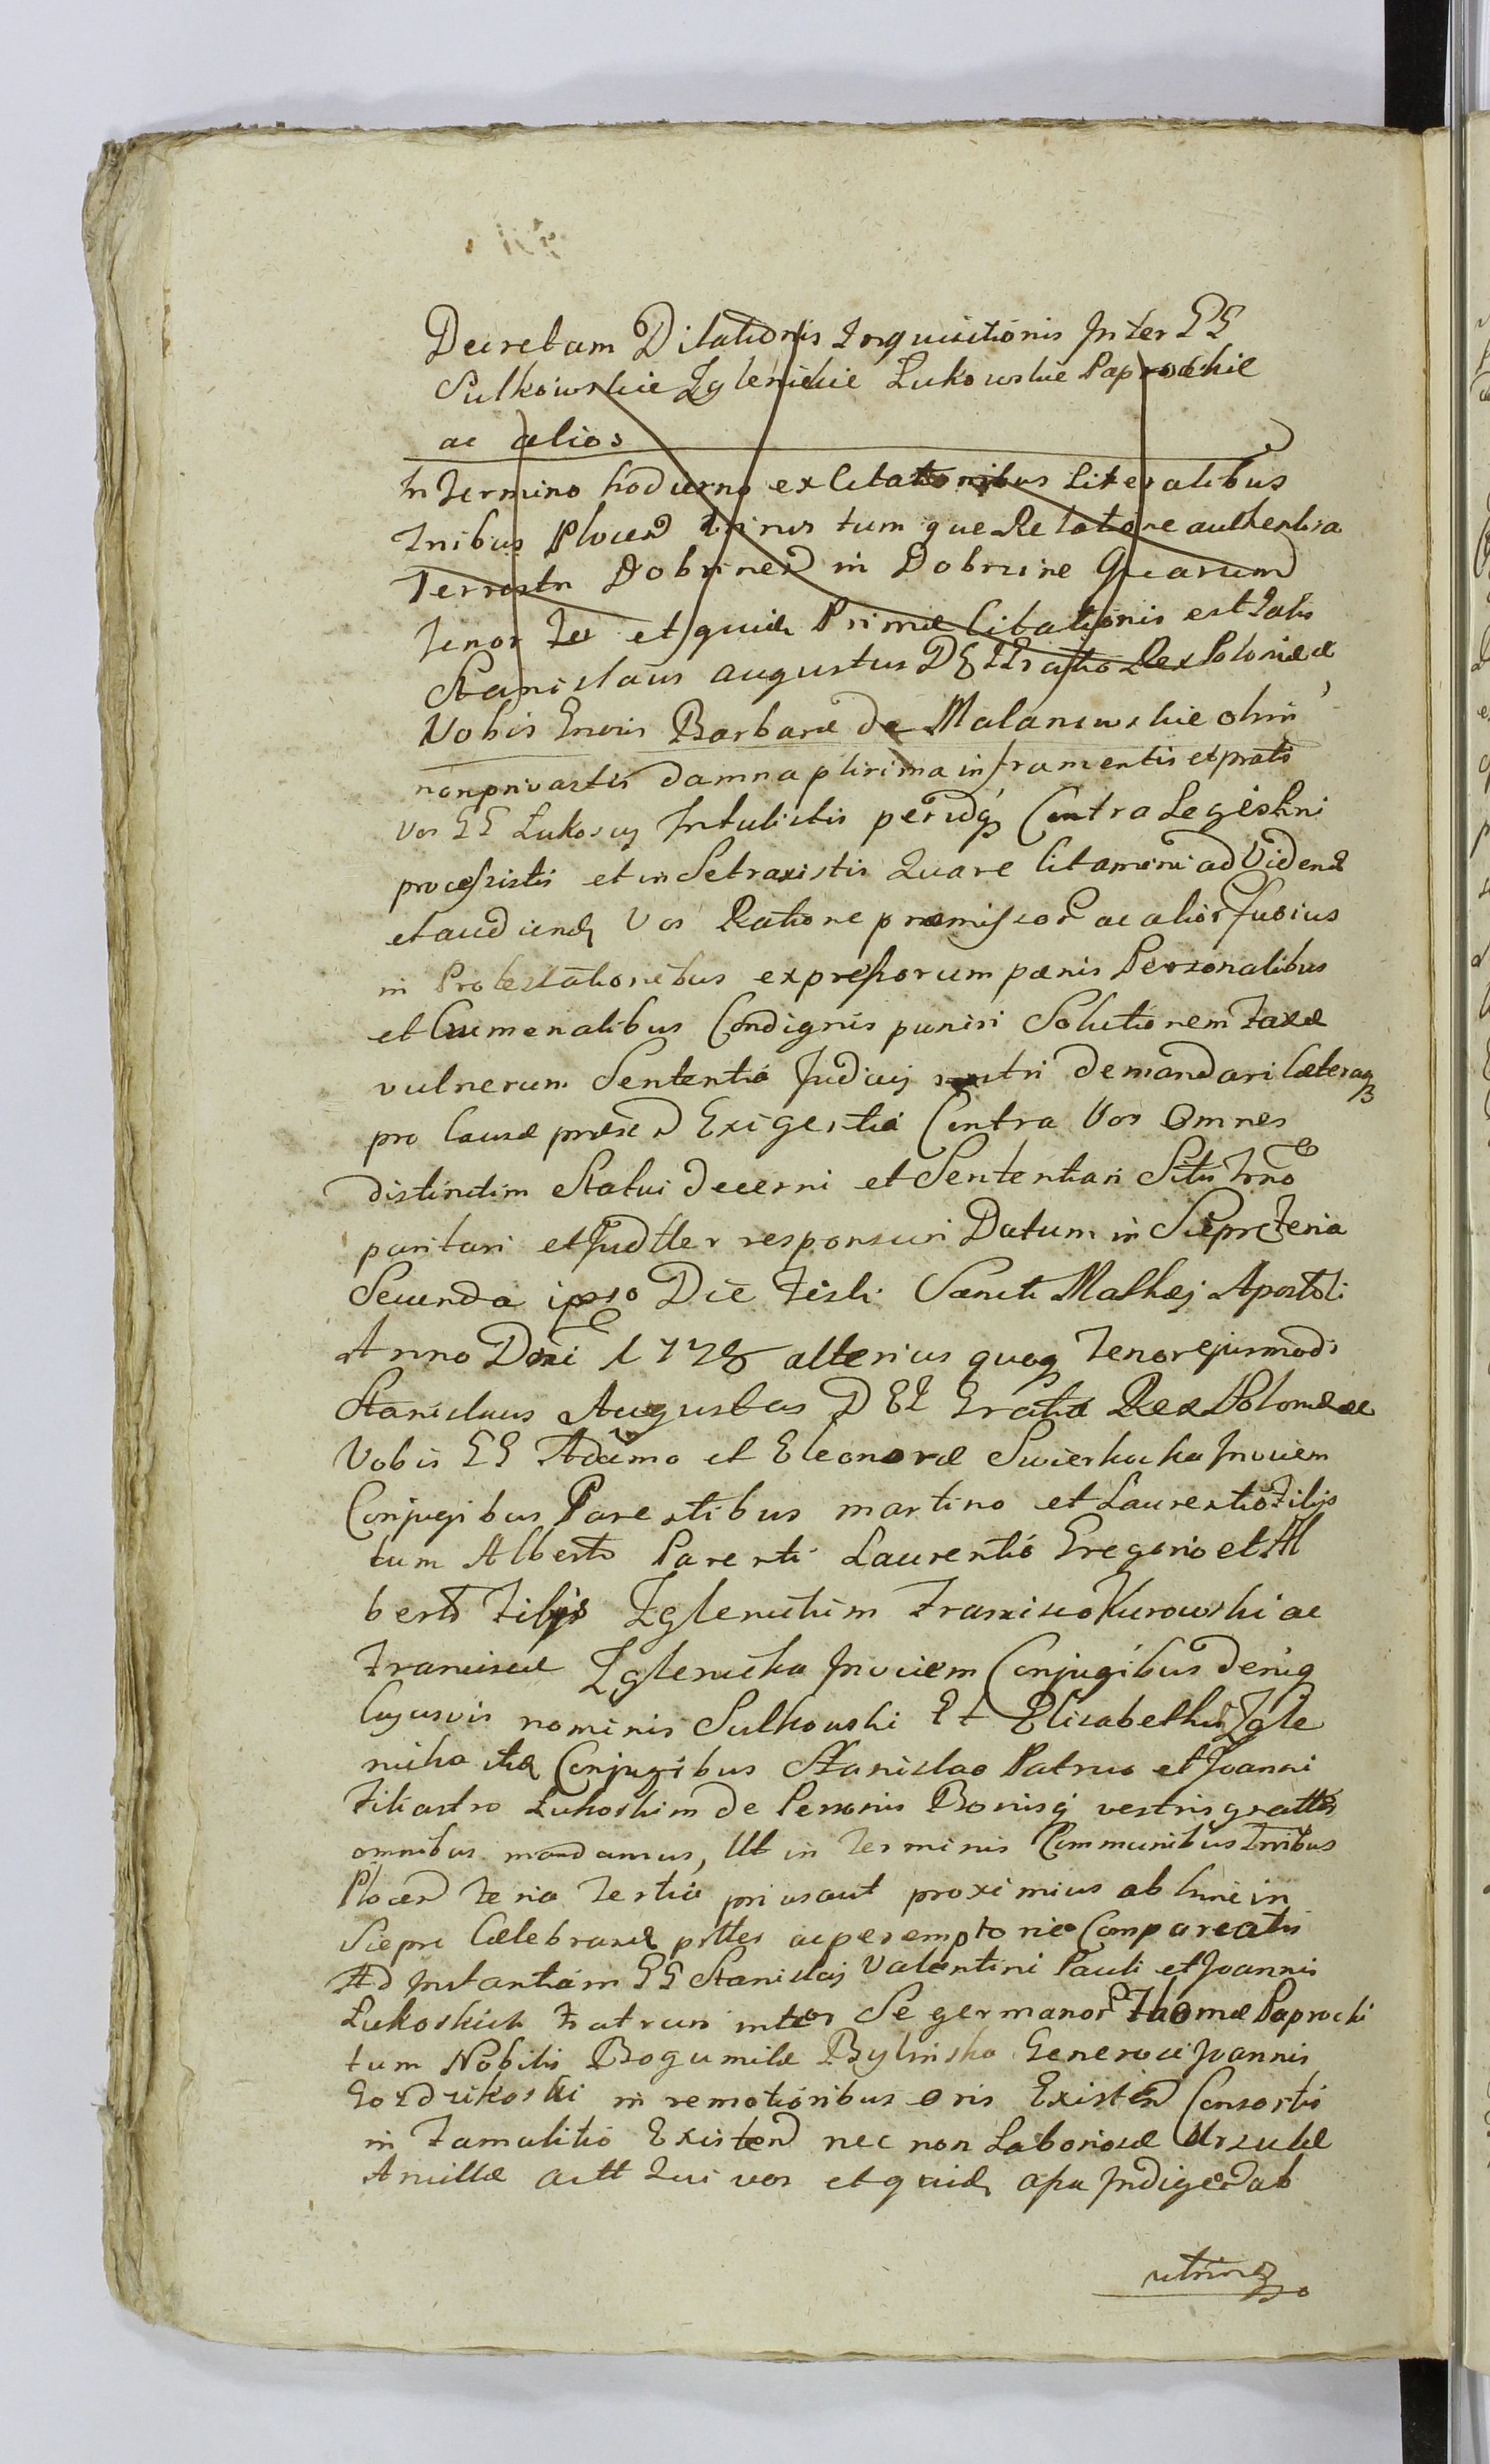 Decretum Dilationis Inquisitionis Inter GG
Sulkowskie Zglenickie Lukowskie Paprockie
ac alios
In Termino hodierno ex Citationibus Literalibus
Tribus Plocen tum que Relatione authentica
Terrestri Dobrinen in Dobrzine Quarum
Tenor et quidem Primæ Citationis est Talis
Stanislaus Augustus DEI Gratia Rex Poloniæ &
Vobis Gnosis Barbaræ de Malaniwskie olim
non privastis damna plurima in frumentis et pratis
vos GG Lukoscy Intulistis peridq Contra Leges
processistis et in Se traxistis Quare Citamini ad Vidend
et audiend Vos Ratione præmissor ac alior fusius
in Protestationibus expressorum pænis Personalibus
et Crumenalibus Condignis puniri Solutionem Taxæ
vulnerum Sententia Judicij nostri demandari Cæteraq
pro Causæ præsen Exigentia Contra Vos Omnes
distinctim Statui decerni et Sententiari Sitis Trno
parituri et Judtter responsuri Datum in Sieprc Feria
Secunda ipso Die Festi Sancti Mathæj Apostoli
Anno Dni 1778 alterius quoq Tenor ejusmodi
Stanislaus Augustus DEI Gratia Rex Poloniæ &
Vobis GG Adamo et Eleonoræ Swierkocka Invicem
Conjugibus Parentibus martino et Laurentio Filijs
tum Alberto Parenti Laurentio Gregorio et Al
berto Filijs Zglenickim Francisco Kurowski ac
Franciscæ Zglenicka Invicem Conjugibus deniq
Cujusvis nominis Sulkowski Et Elisabethæ Zgle
nicka itid Conjugibus Stanislao Patruo et Joanni
Filiastro Lukoskim de Personis Bonisq vestris gnatter
omnibus mandamus, Ut in Terminis Communibus Tribus
Plocen Feria Tertia prius aut proximius ab hinc in
Sieprc Celebrand pstter ac peremptorie Compareatis
Ad Instantiam GG Stanislaj Valentini Pauli et Joannis
Lukoskich Fratrum inter Se germanor Thomæ Paprocki
tum Nobilis Bogumilæ Bylinska Generosi Joannis
Gozdzikoski in remotioribus oris Existen Consortis
in Famulitio Existen nec non Laboriosæ Urzulæ
Ancillæ actt Qui vos et quid apu Indiged ab
utrinq